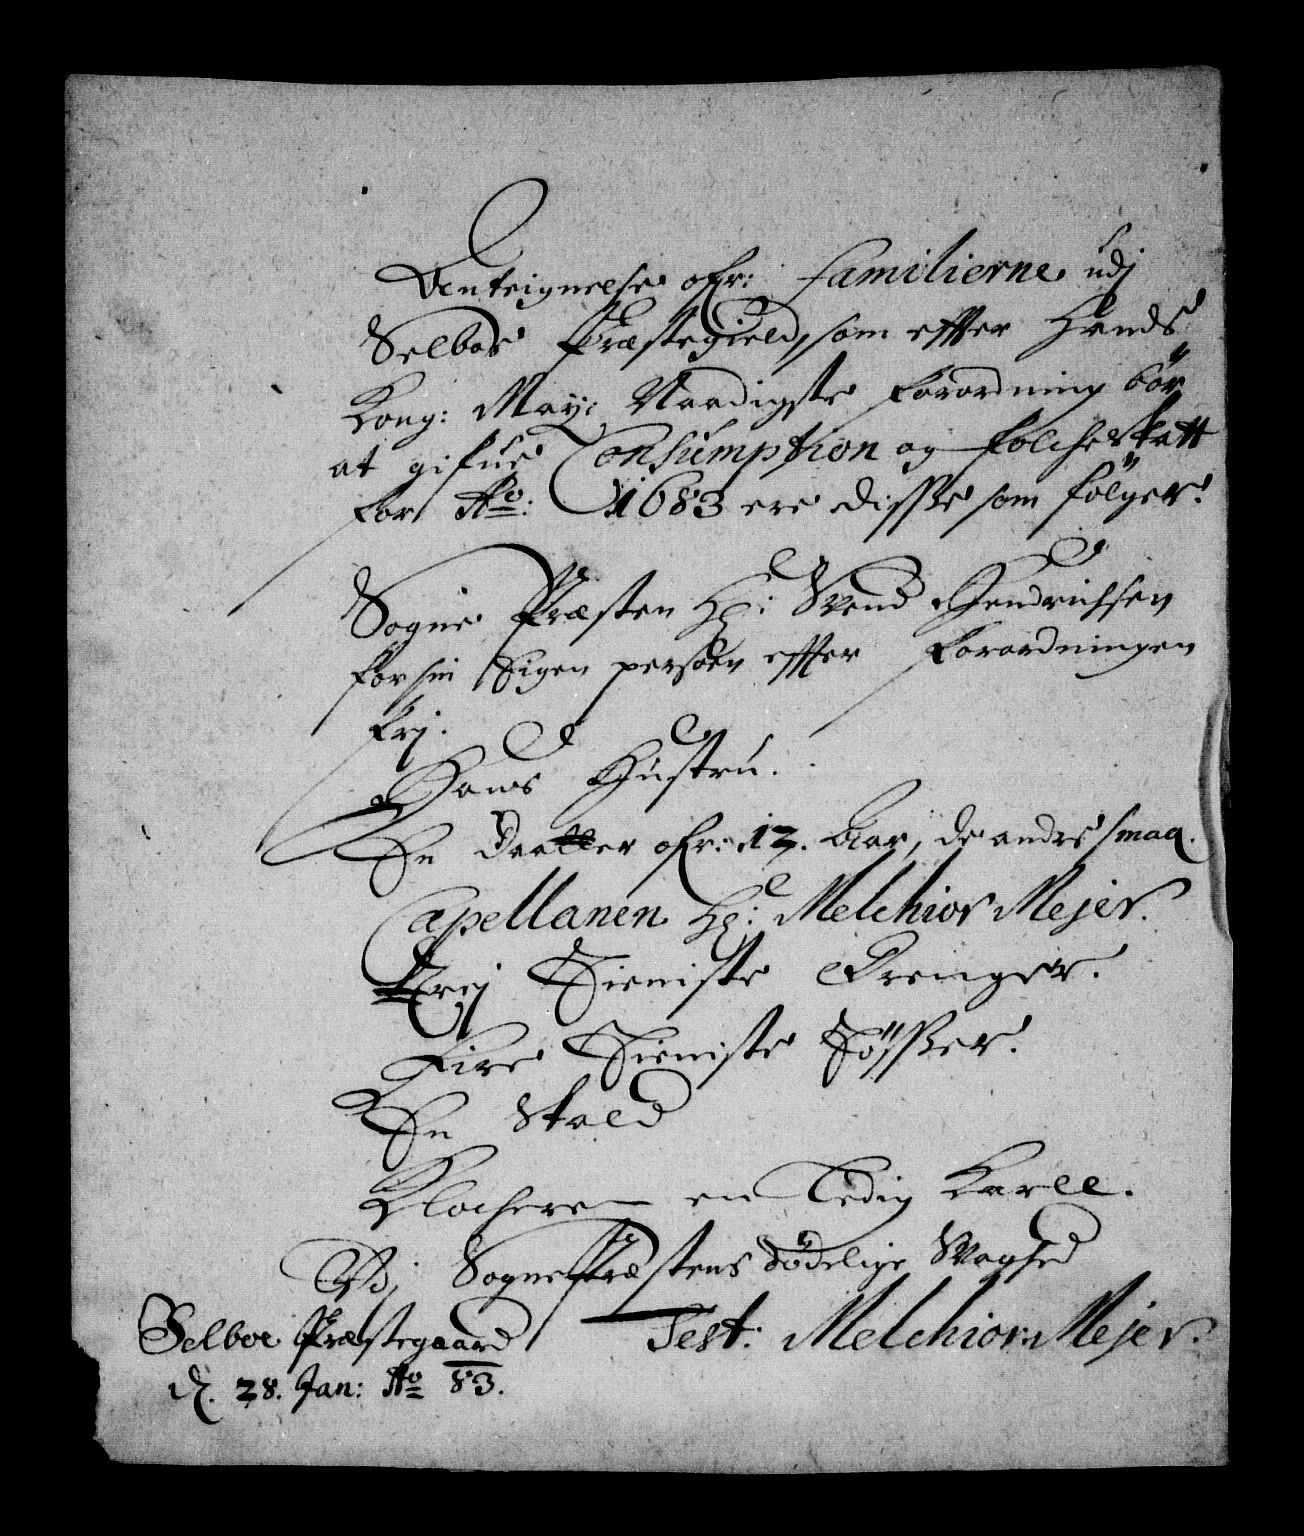 Anteignelse ofr: familierne udj
Selboe Præstegield, som effter Hands
Kong: May: Naadigste forordning bör
at gifue Consumption og folcheskatt
for Ao: 1683 ere disse som fölger.
Sogne Præsten Hr: Svend Hendrichsen
for sin Eigen persoen effter forordningen
frj.
Hans Hustru.
En Daatter ofr: 12. Aar, de andre smaa.
Capellanen Hr: Melchior Mejer.
Trej Tieniste Drenger.
Fire Tieniste Töffser.
En Stald
Klocheren en Ledig Karll.
Vdj Sognepræstens dödelige Svaghed
Test: Melchior: Mejer.
Selboe Præstegaard
d. 28. Jan: Ao 83.